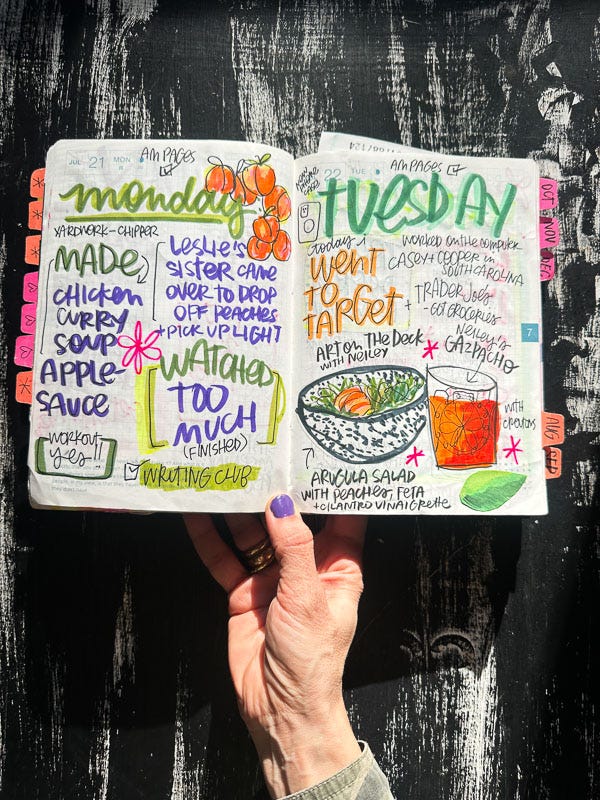 JUL 21 MON
AM PAGES
monday
YARDWORK-CHIPPER
MADE
CHICKEN
CURRY
SOUP
APPLE-
SAUCE
WORKOUT
yes!!
LESLIE'S
SISTER CAME
OVER TO DROP
OFF PEACHES
+ PICK UP LIGHT
WATCHED
TOO
MUCH
(FINISHED)
WRITING CLUB
22 TUE
AM PAGES
TUESDAY
today I
WENT
TO
TARGET
WORKED ON THE COMPUTER
CASEY + COOPER IN
SOUTH CAROLINA
+ TRADER JOE'S
- GOT GROCERIES
ART ON THE DECK
WITH NEILEY
NEILEY'S
GAZPACHO
WITH
ARUGULA SALAD
WITH PEACHES, FETA
+ CILANTRO VINAIGRETTE
OCT
NOV
DEC
7
AUG
SEP